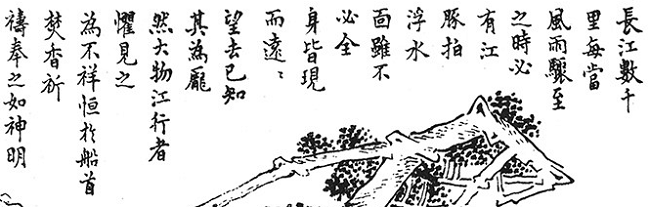 長江數千
里每當
風雨驟至
之時必
有江
豚拍
浮水
面雖不
必全
身皆現
而遠〻
望去已知
其為龐
然大物江行者
懼見之
為不祥恒於船首
焚香祈
禱奉之如神明